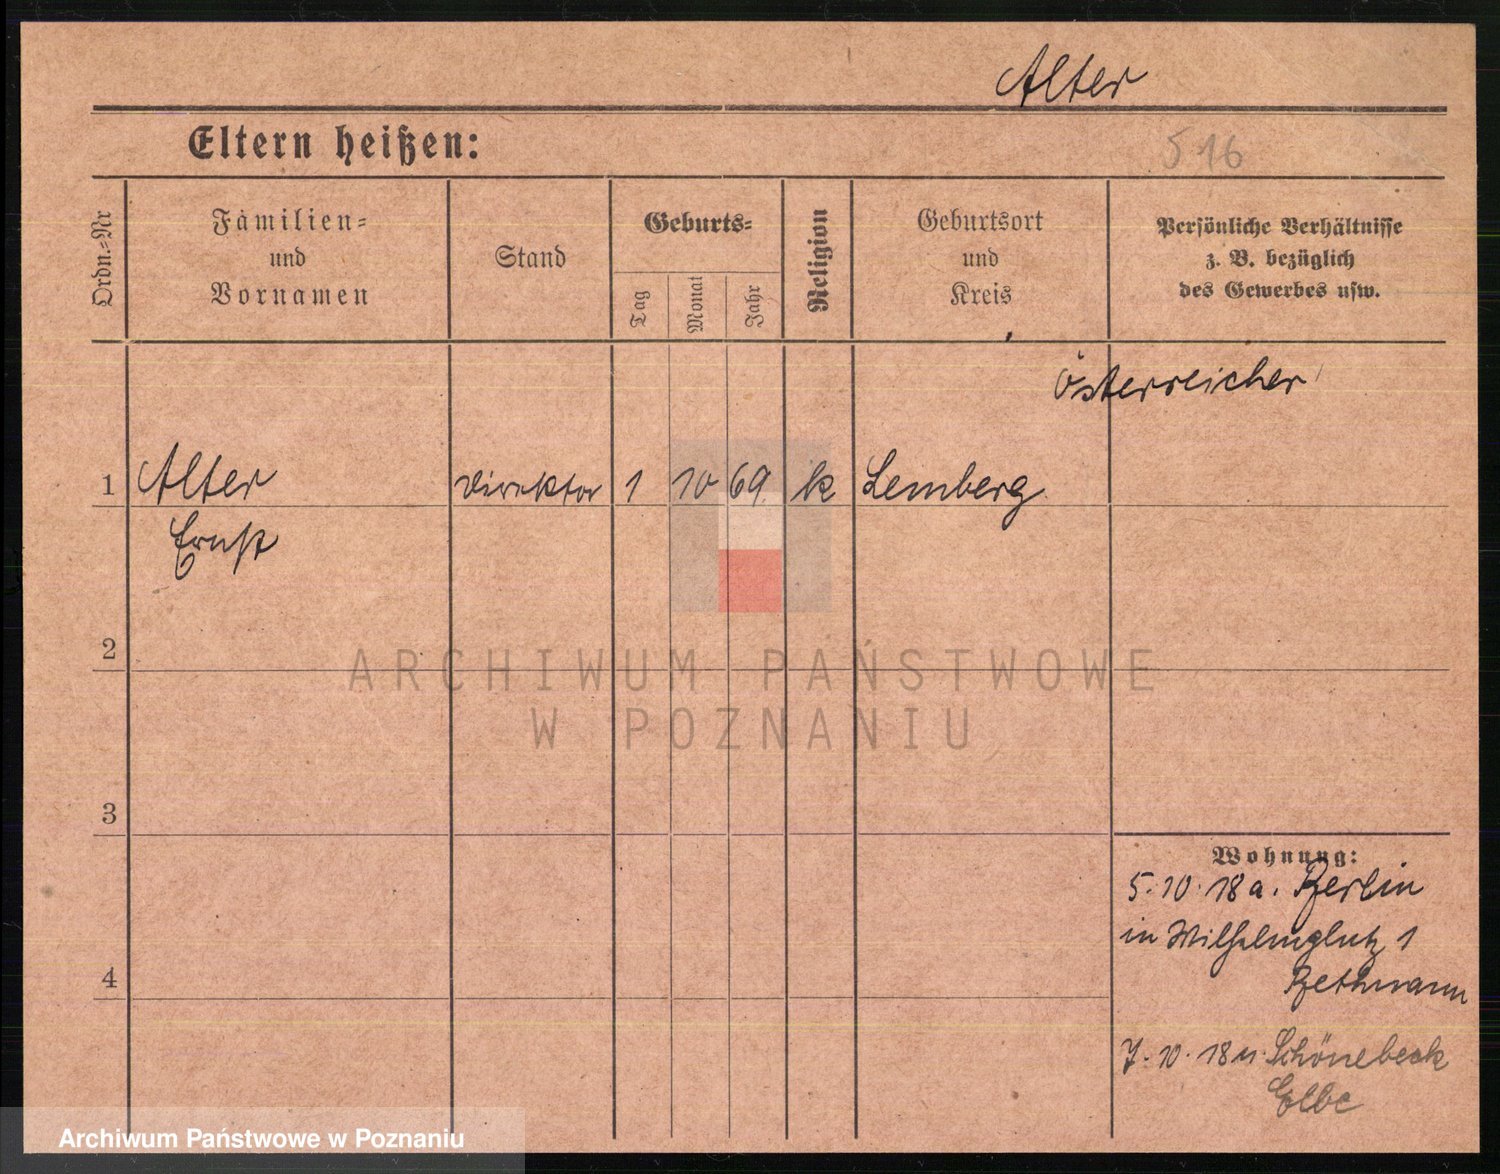 Alter
Eltern heißen:
516
Ordn.=Nr
Familien=
und
Vornamen
Stand
Geburts=
Tag
Monat
Jahr
Religion
Geburtsort
und
Kreis
Persönliche Verhältnisse
z. B. bezüglich
des Gewerbes usw.
Österreicher
1 Alter Direktor 1 10 69. k Lemberg
Ernst
2
ARCHIWUM PAŃSTWOWE
W POZNANIU
3
Wohnung:
5.10.18 a. Berlin
in Wilhelmplatz 1
Bethmann
4
7.10.18 n Schönebeck
Elbe
Archiwum Państwowe w Poznaniu